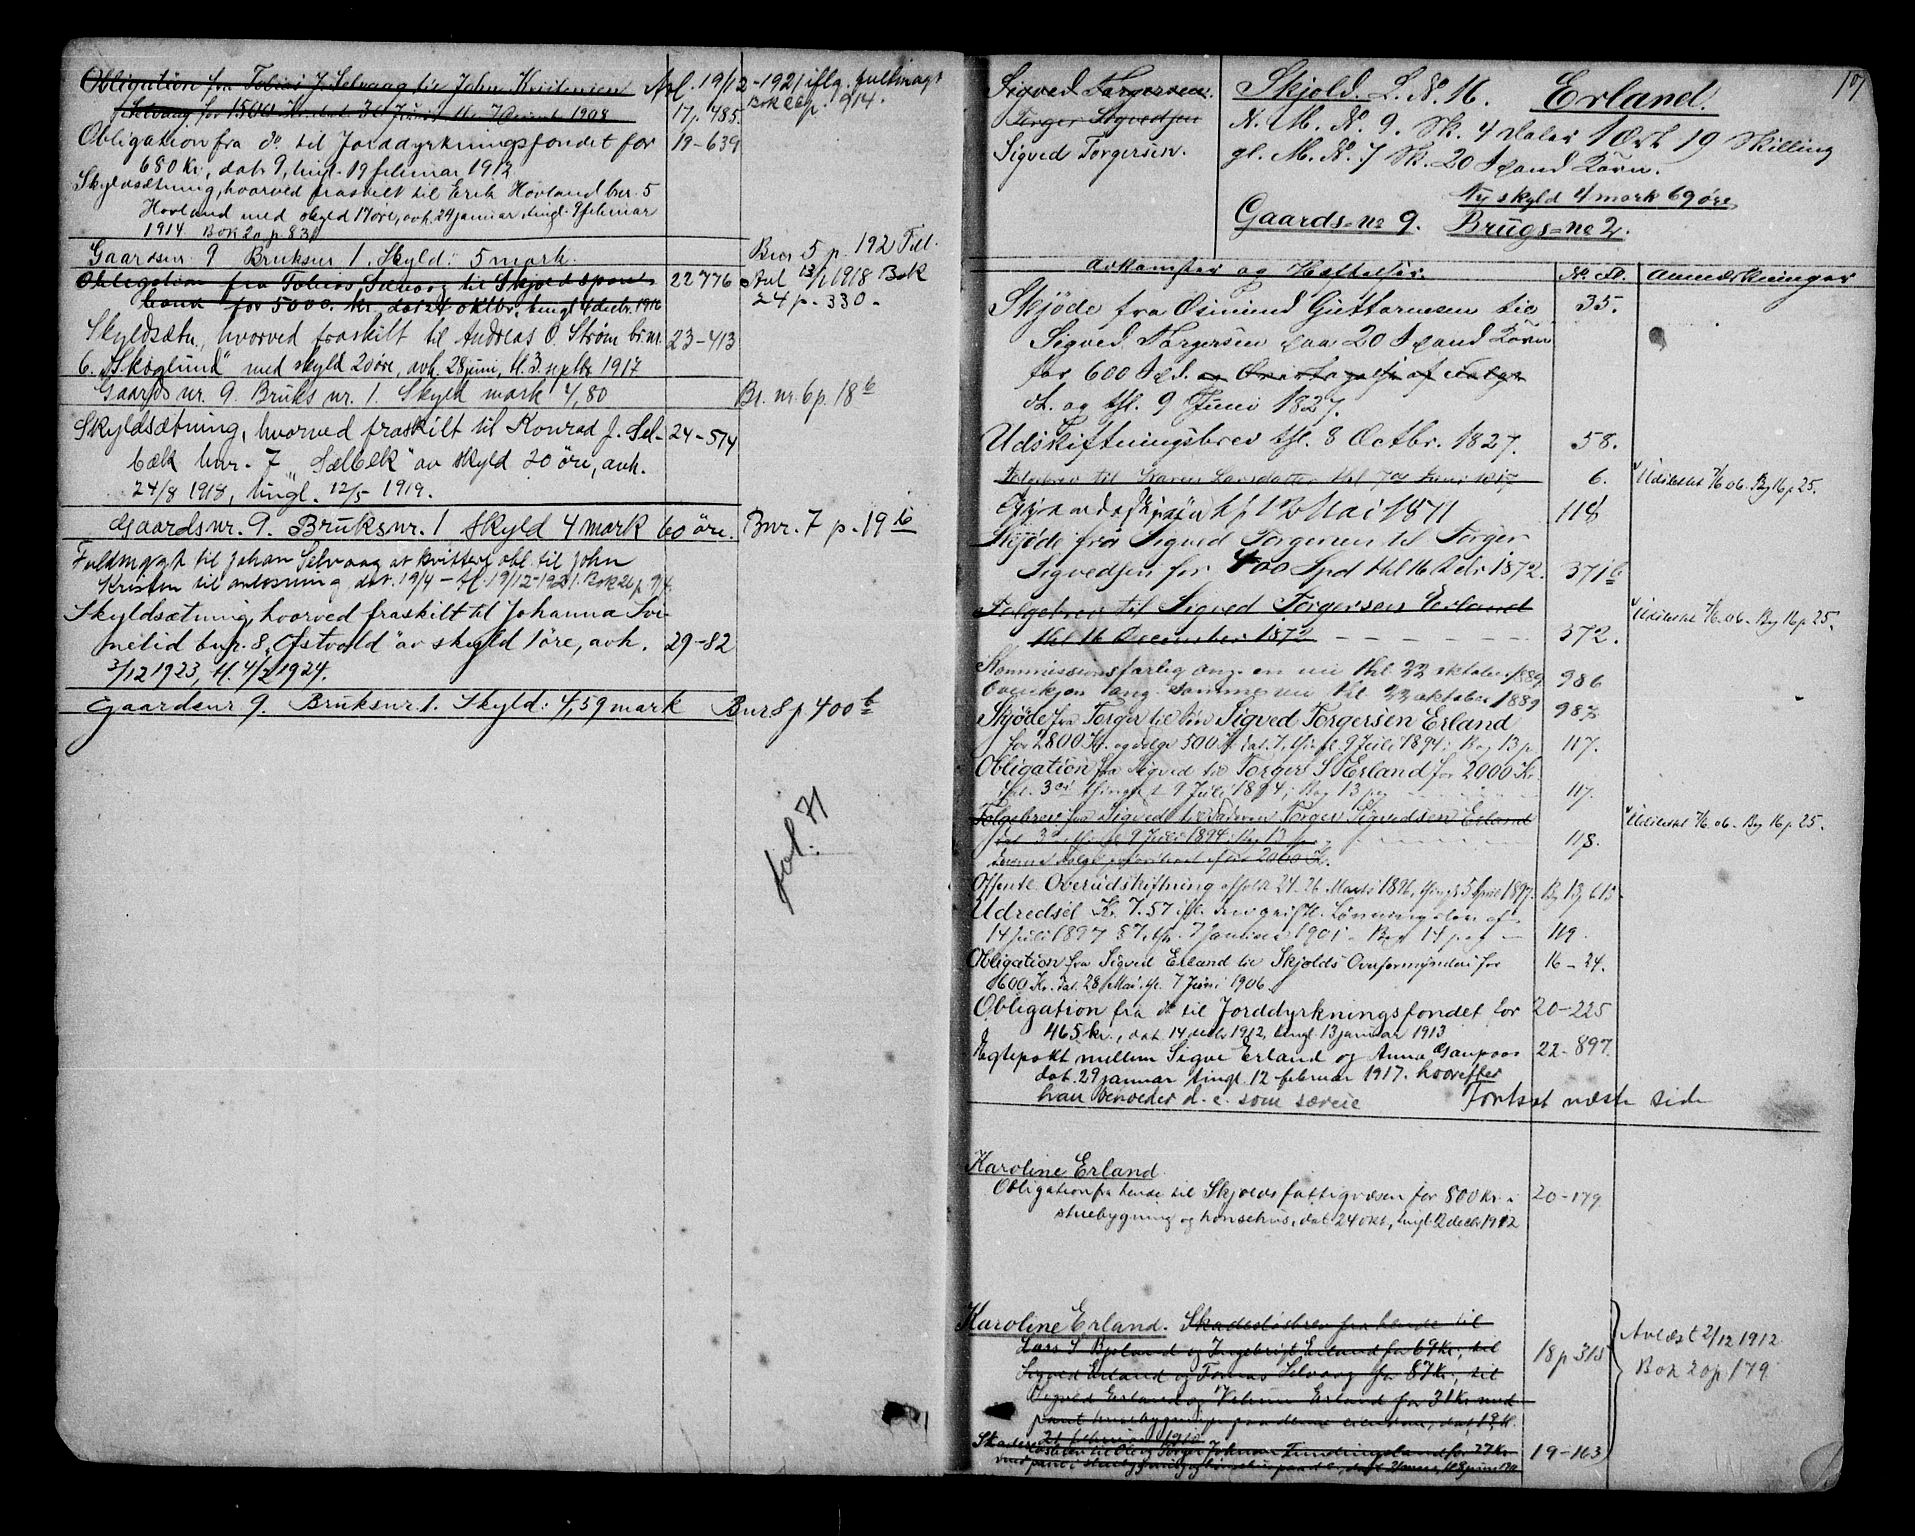 Obligation fra Tobias J. Selvaag til John Kristensen Avl. 19/12-1921 iflg. fullmagt
Selvaag for 1500 Kr. dat. 3 Juni tl. 7 1908 17 p. 485. Bok 26 p. 914.
Obligation fra do. til Jorddyrkningsfondet for 19-639
680 kr., dat. 9, tingl. 19 februar 1912
Skyldsætning, hvorved fraskilt til Erik Hovland bnr. 5
Hovland med skyld 17 øre, avh. 24 januar, tingl. 9 februar
1914 Bok 20 p 830
Gaardsnr. 9 Bruksnr 1. Skyld: 5 mark. Bnr 5 p. 192
Obligation fra Tobias Selvaag til Skjold spare- 22 776 Avl 1918 Bok
bank for 5000 kr, dat. 21 oktbr., tingl. 4 decbr. 1916 24 p. 330.
Skyldsætn., hvorved fraskilt til Andreas O. Strøm br. nr. 23-413
6. "Skoglund" med skyld 20 øre, avh. 28 juni, tl. 3. septbr 1917
Gaards nr. 9 Bruks nr. 1. Skyld mark 4,80 Br. nr. 6 p. 18 b
Skyldsætning, hvorved fraskilt til Konrad J. Sel- 24-514
bæk bnr. 7 "Sælbek" av skyld 20 øre, avh.
24/8 1918, tingl. 12/5 1919.
Gaardsnr. 9. Bruksnr. 1 Skyld 4 mark 60 øre. Bnr. 7 p. 19 b
Fuldmagt til Johan Selvaag at kvittere obl. til John
Kristen til avløsning dat. 19/4 - tl. 19/12-1921. Bok 26 p 914.
Skyldsætning, hvorved fraskilt til Johanna Svi-
netid bnr. 8. "Østvold" av skyld 1 øre, avh. 29-82
3/12 1923, tl. 4/2 1924.
Gaardsnr 9. Bruksnr. 1. Skyld: 4,59 mark Bnr 8 p 400 b
fol. 71
17
Sigved Torgersen.
Torger Sigvedsen
Sigved Torgersen.
Skjold. L. N. 16. Erland.
N. M. N. 9. Sk. 4 Daler 1 Ort 19 Skilling
gl. M. N. 7 Sk. 20 Spand Korn.
Ny skyld 4 mark 69 øre,
Gaards-no 9. Brugs-no 2.
Adkomster og Heftelser. No. Anmærkninger
Skjøde fra Osmund Guttormsen til 35.
Sigved Torgersen paa 20 Spand Korn
for 600 Spd. og Overtagelse af Folge
dt. og tl. 9 Juni 1827.
Udskiftningsbrev tl. 8 Octbr. 1827. 58.
Folgebrev til Karen Larsdatter thl 7de Juni 6. Udslettet 7/6 06. Bog 16 p 25.
thl. 12 Mai 1871 118
Skjøde fra Sigved Torgersen til Torger
Sigvedsen for 400 Spd thl 16 Decbr 1872. 371 b
Folgebrev til Sigved Torgersen Erland Udslettet 7/6 06. Bog 16 p 25.
thl 16 December 1872 372.
Kommissionsforlig ang. en thl 22 oktober 1889 986
Overskjøn ang. samme thl 22 oktober 1889 987
Skjøde fra Torger til søn Sigved Torgersen Erland
for 2800 Kr. og folge 500 Kr dat. 7, thingl 9 Juli 1894 i Bog 13 p 117.
Obligation fra Sigved til Torger S Erland for 2000 Kr.
dat. 3die thingl. 9 Juli 1894 i Bog 13 pag 117.
Folgebrev fra Sigved til Faderen Torger Sigvedsen Erland Udslettet 7/6 06. Bog 16 p 25.
dat 3die 9 Juli 1894 Bog 13 p 118.
2000 Kr.
Offentl. Overudskiftning afholdt 24-26 Marts 1896, thingl. 5 April 1897. Bg 13, 615
Udredsel Kr. 7.57 ifl. Lønningslov af
14 Juli 1897 § 7, thl. 7 Januar 1901. Bog 14 pag 119.
Obligation fra Sigved Erland til Skjolds Overformynderi for 16-24.
1600 Kr. dat. 28 Mai, tl. 7 Juni 1906.
Obligation fra do til Jorddyrkningsfondet for 20-225
465 kr., dat 14 decbr 1912, tingl 13 januar 1913
Egtepakt mellem Sigve Erland og Anna Gaupaas 22-897.
dat. 29 januar tingl 12 februar 1917. hvorefter
han beholder d. e. som særeie Fortsat næste side
Karoline Erland.
Obligation fra hende til Skjolds fattigvæsen for 800 kr. i 20-179
stuebygning og hønsehus, dat 24 okt, tingl 2 decbr 1912
Karoline Erland. Skadesløsbrev fra hende til
Lars S Bjoland og Ingebrigt Erland for 69 kr., til 18 p 315 Avlæst 2/12 1912
Sigved Erland og Tomas Selvaag for 87 kr., til Bok 20 p 179
Sigved Erland og Erland for 31 kr med
pant i husebygninger paa denne eiendom, dat. 12, tl.
21 februar 1910
Skadesløsbrev til Ole og Torger Johnsen Tindingsland for 27 kr 19-163